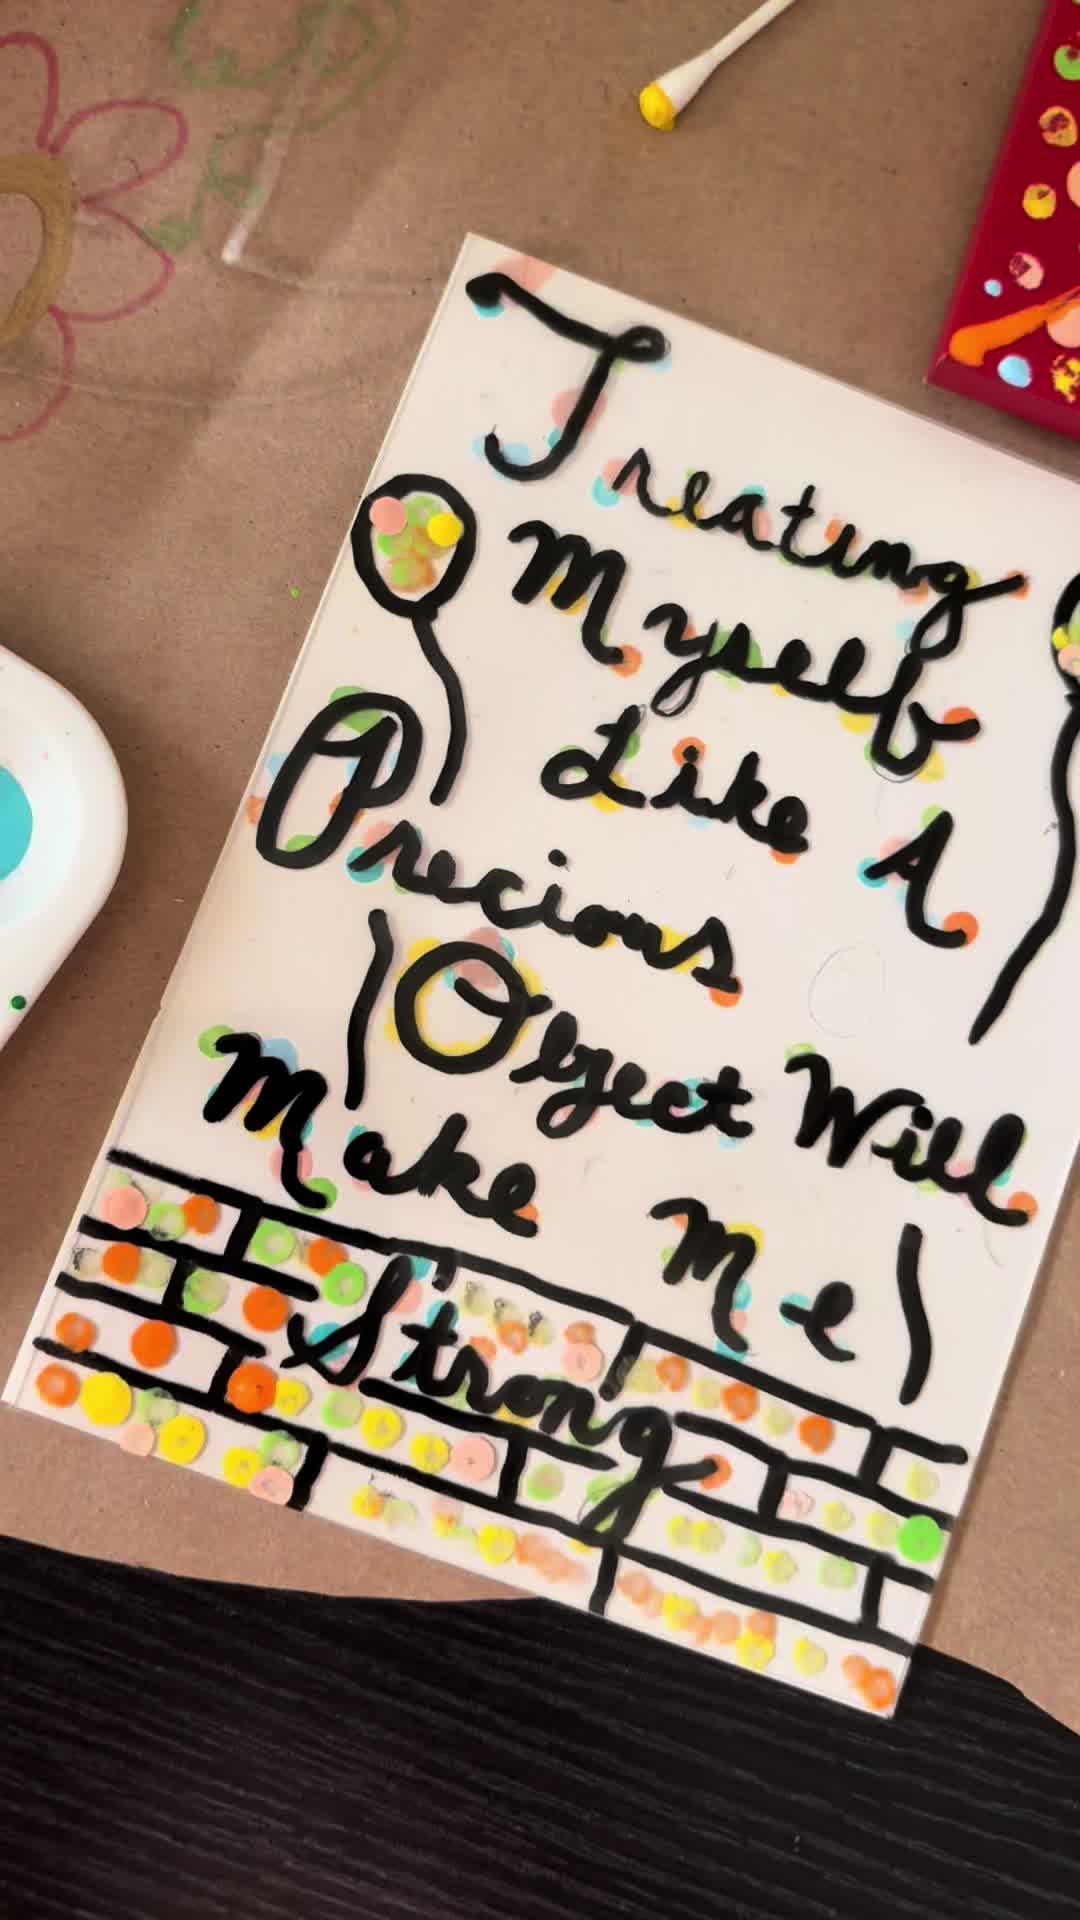 Treating
Myself
Like A
Precious
Object Will
Make Me
Strong